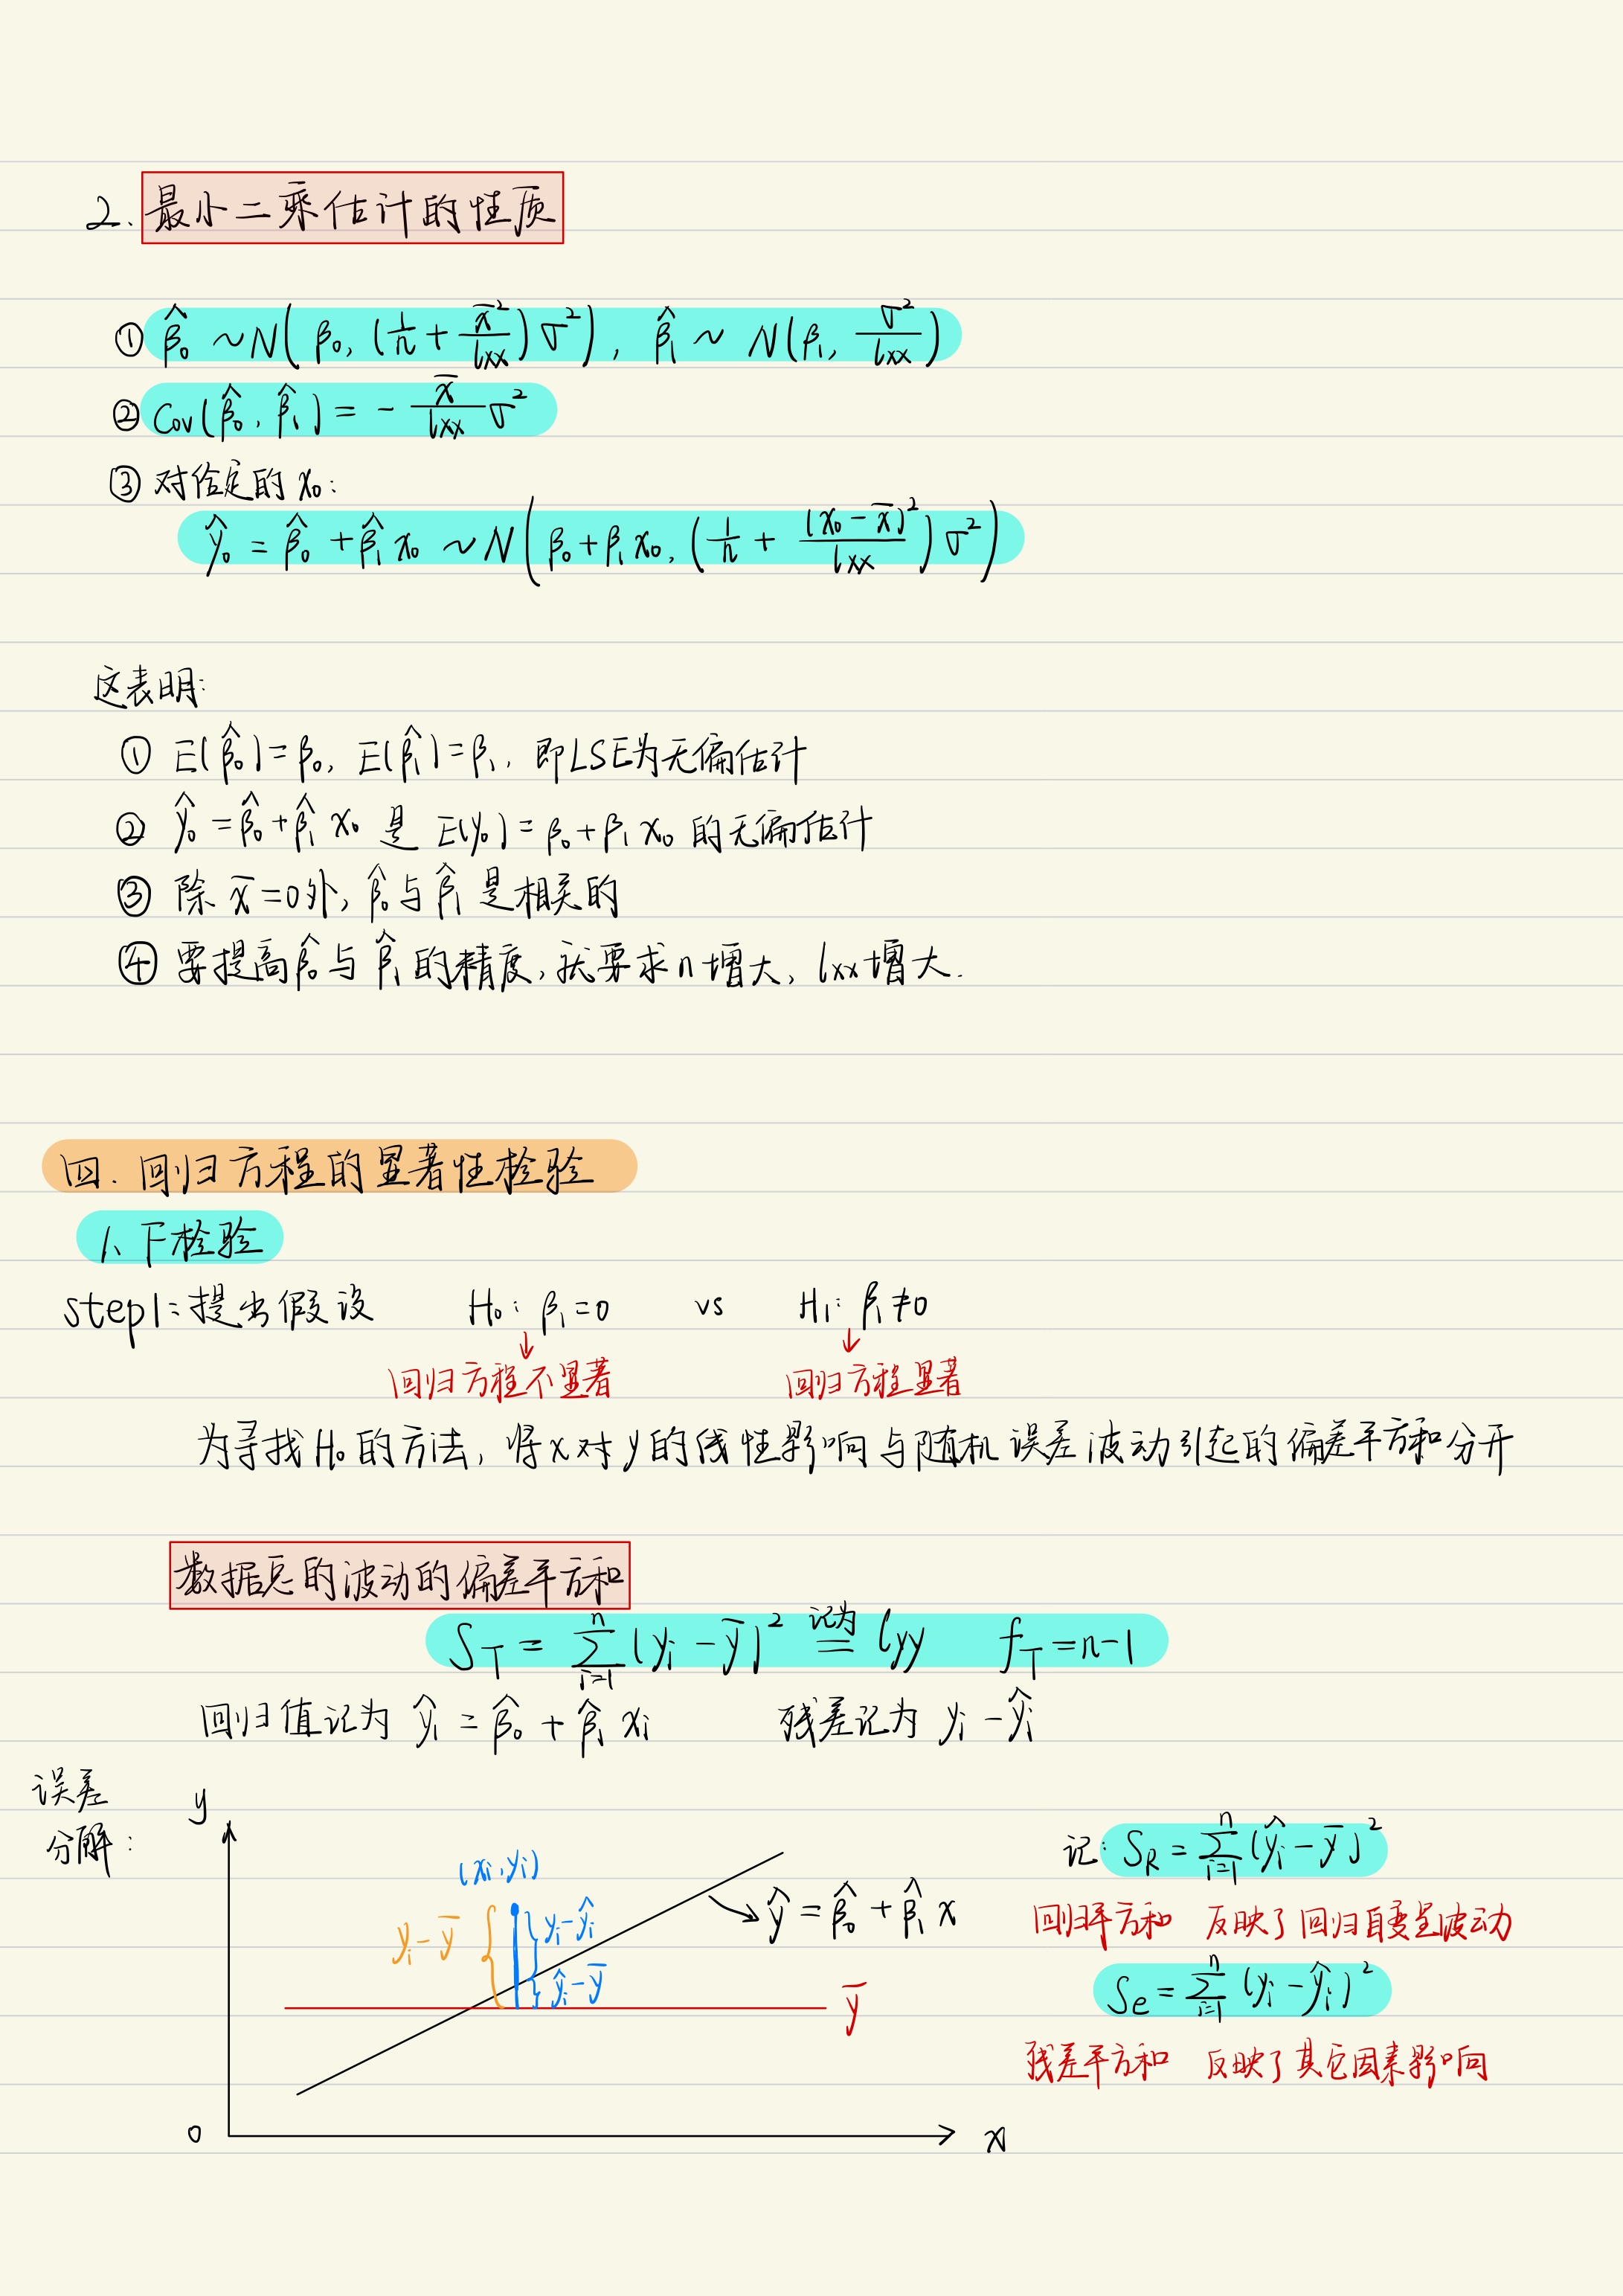 2. 最小二乘估计的性质
① β̂₀ ~ N(β₀, (1/n + x̄²/lxx)σ²), β̂₁ ~ N(β₁, σ²/lxx)
② Cov(β̂₀, β̂₁) = - x̄/lxx σ²
③ 对给定的 x₀:
ŷ₀ = β̂₀ + β̂₁ x₀ ~ N(β₀ + β₁ x₀, (1/n + (x₀ - x̄)²/lxx)σ²)
这表明:
① E(β̂₀) = β₀, E(β̂₁) = β₁, 即LSE为无偏估计
② ŷ₀ = β̂₀ + β̂₁ x₀ 是 E(y₀) = β₀ + β₁ x₀ 的无偏估计
③ 除 x̄ = 0 外, β̂₀ 与 β̂₁ 是相关的
④ 要提高 β̂₀ 与 β̂₁ 的精度, 就要求 n 增大, lxx 增大.
四. 回归方程的显著性检验
1、F检验
step1: 提出假设 H₀: β₁ = 0 vs H₁: β₁ ≠ 0
↓ ↓
回归方程不显著 回归方程显著
为寻找 H₀ 的方法, 将 x 对 y 的线性影响与随机误差波动引起的偏差平方和分开
数据总的波动的偏差平方和
S_T = Σⁿᵢ₌₁ (yᵢ - ȳ)² 记为= lyy f_T = n-1
回归值记为 ŷᵢ = β̂₀ + β̂₁ xᵢ 残差记为 yᵢ - ŷᵢ
误差
分解:
y
(xᵢ, yᵢ)
yᵢ - ȳ
yᵢ - ŷᵢ
ŷᵢ - ȳ
ŷ = β̂₀ + β̂₁ x
ȳ
0
x
记: S_R = Σⁿᵢ₌₁ (ŷᵢ - ȳ)²
回归平方和 反映了回归自变量波动
Se = Σⁿᵢ₌₁ (yᵢ - ŷᵢ)²
残差平方和 反映了其它因素影响